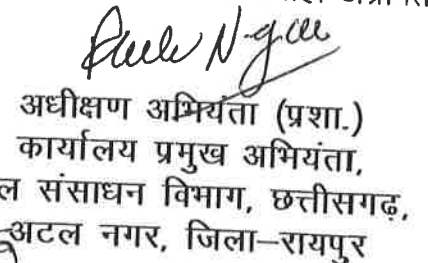 अधीक्षण अभियंता (प्रशा.)
कार्यालय प्रमुख अभियंता,
ल संसाधन विभाग, छत्तीसगढ़,
अटल नगर, जिला–रायपुर